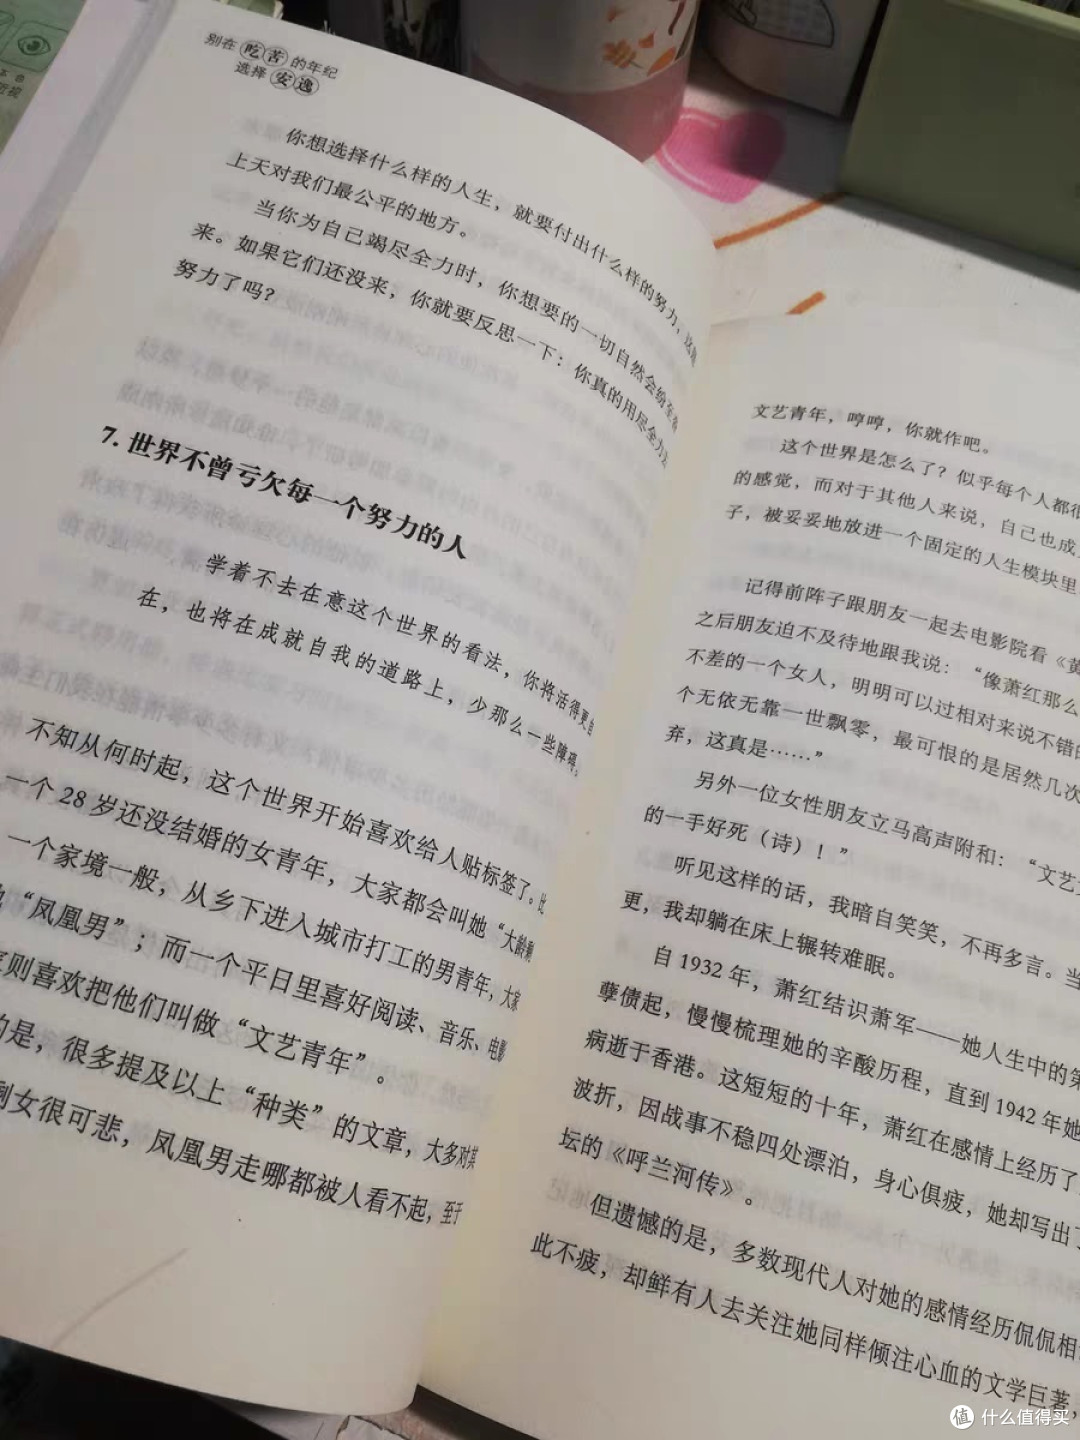 别在吃苦的年纪
选择安逸
你想选择什么样的人生，就要付出什么样的努力，这是
上天对我们最公平的地方。
当你为自己竭尽全力时，你想要的一切自然会纷至沓
来。如果它们还没来，你就要反思一下：你真的用尽全力去
努力了吗？
7. 世界不曾亏欠每一个努力的人
学着不去在意这个世界的看法，你将活得更自
在，也将在成就自我的道路上，少那么一些障碍。
不知从何时起，这个世界开始喜欢给人贴标签了。比
一个 28 岁还没结婚的女青年，大家都会叫她“大龄剩
一个家境一般，从乡下进入城市打工的男青年，大家
“凤凰男”；而一个平日里喜好阅读、音乐、电影
则喜欢把他们叫做“文艺青年”。
的是，很多提及以上“种类”的文章，大多对其
剩女很可悲，凤凰男走哪都被人看不起，至于
文艺青年，哼哼，你就作吧。
这个世界是怎么了？似乎每个人都很
的感觉，而对于其他人来说，自己也成
子，被妥妥地放进一个固定的人生模块里
记得前阵子跟朋友一起去电影院看《黄
之后朋友迫不及待地跟我说：“像萧红那么
不差的一个女人，明明可以过相对来说不错的
个无依无靠一世飘零，最可恨的是居然几次
弃，这真是……”
另外一位女性朋友立马高声附和：“文艺
的一手好死（诗）！”
听见这样的话，我暗自笑笑，不再多言。当
更，我却躺在床上辗转难眠。
自 1932 年，萧红结识萧军——她人生中的第
孽债起，慢慢梳理她的辛酸历程，直到 1942 年她
病逝于香港。这短短的十年，萧红在感情上经历了
波折，因战事不稳四处漂泊，身心俱疲，她却写出了
坛的《呼兰河传》。
但遗憾的是，多数现代人对她的感情经历侃侃相
此不疲，却鲜有人去关注她同样倾注心血的文学巨著，
值 什么值得买